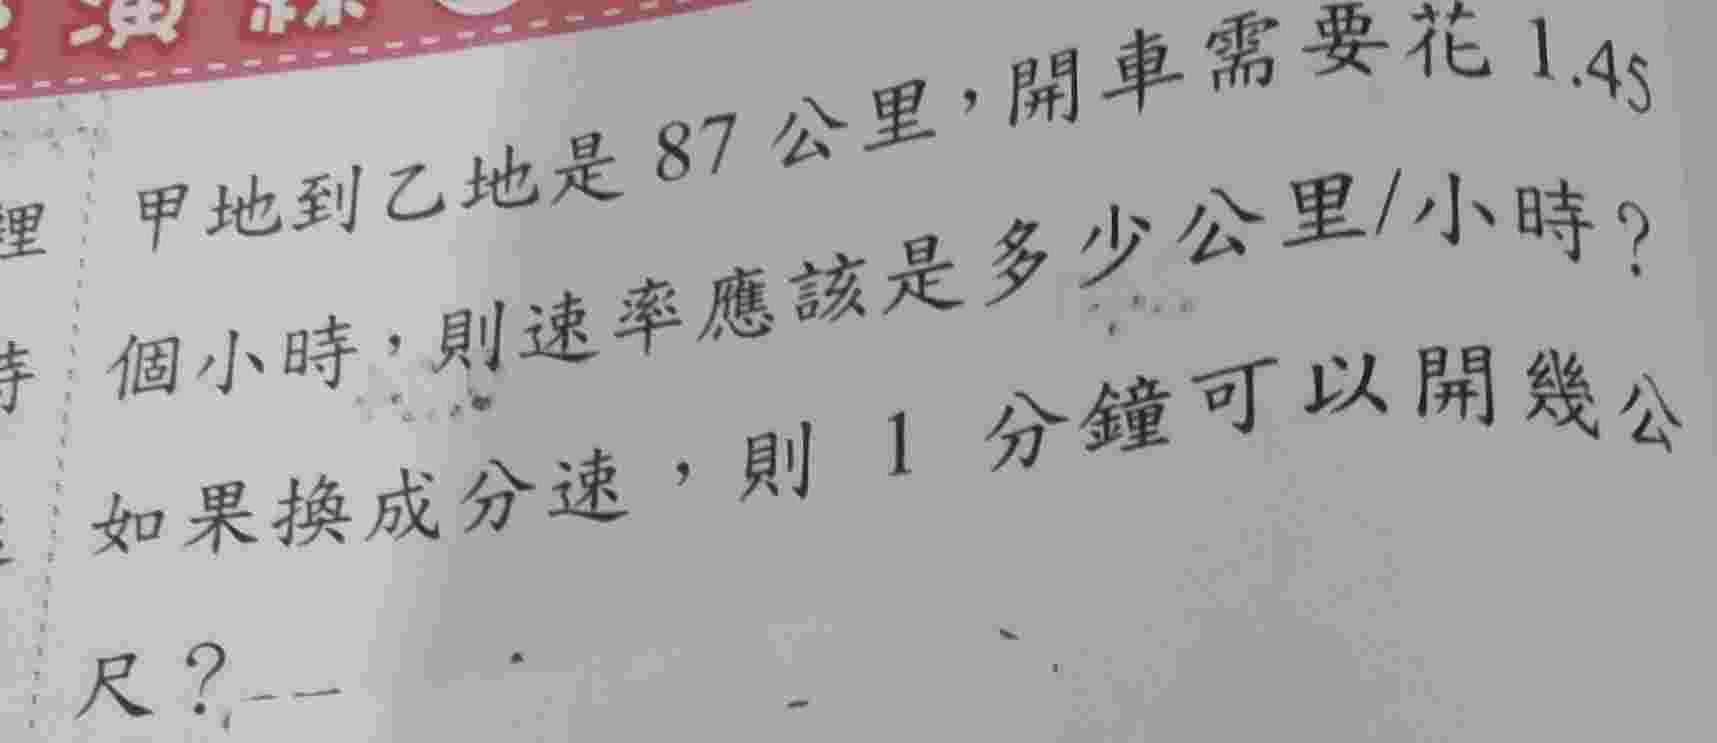 演練
甲地到乙地是 87 公里，開車需要花 1.45
個小時，則速率應該是多少公里/小時？
如果換成分速，則 1 分鐘可以開幾公
尺？